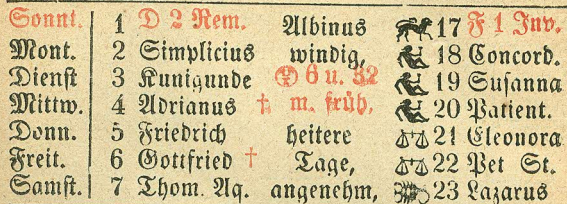 Sonnt. 1 D 2 Rem. Albinus 17 F 1 Inv.
Mont. 2 Simplicius windig, 18 Concord.
Dienst 3 Kunigunde 6 u. 32 19 Susanna
Mittw. 4 Adrianus † m. früh, 20 Patient.
Donn. 5 Friedrich heitere 21 Eleonora
Freit. 6 Gottfried † Tage, 22 Pet St.
Samst. 7 Thom. Aq. angenehm, 23 Lazarus